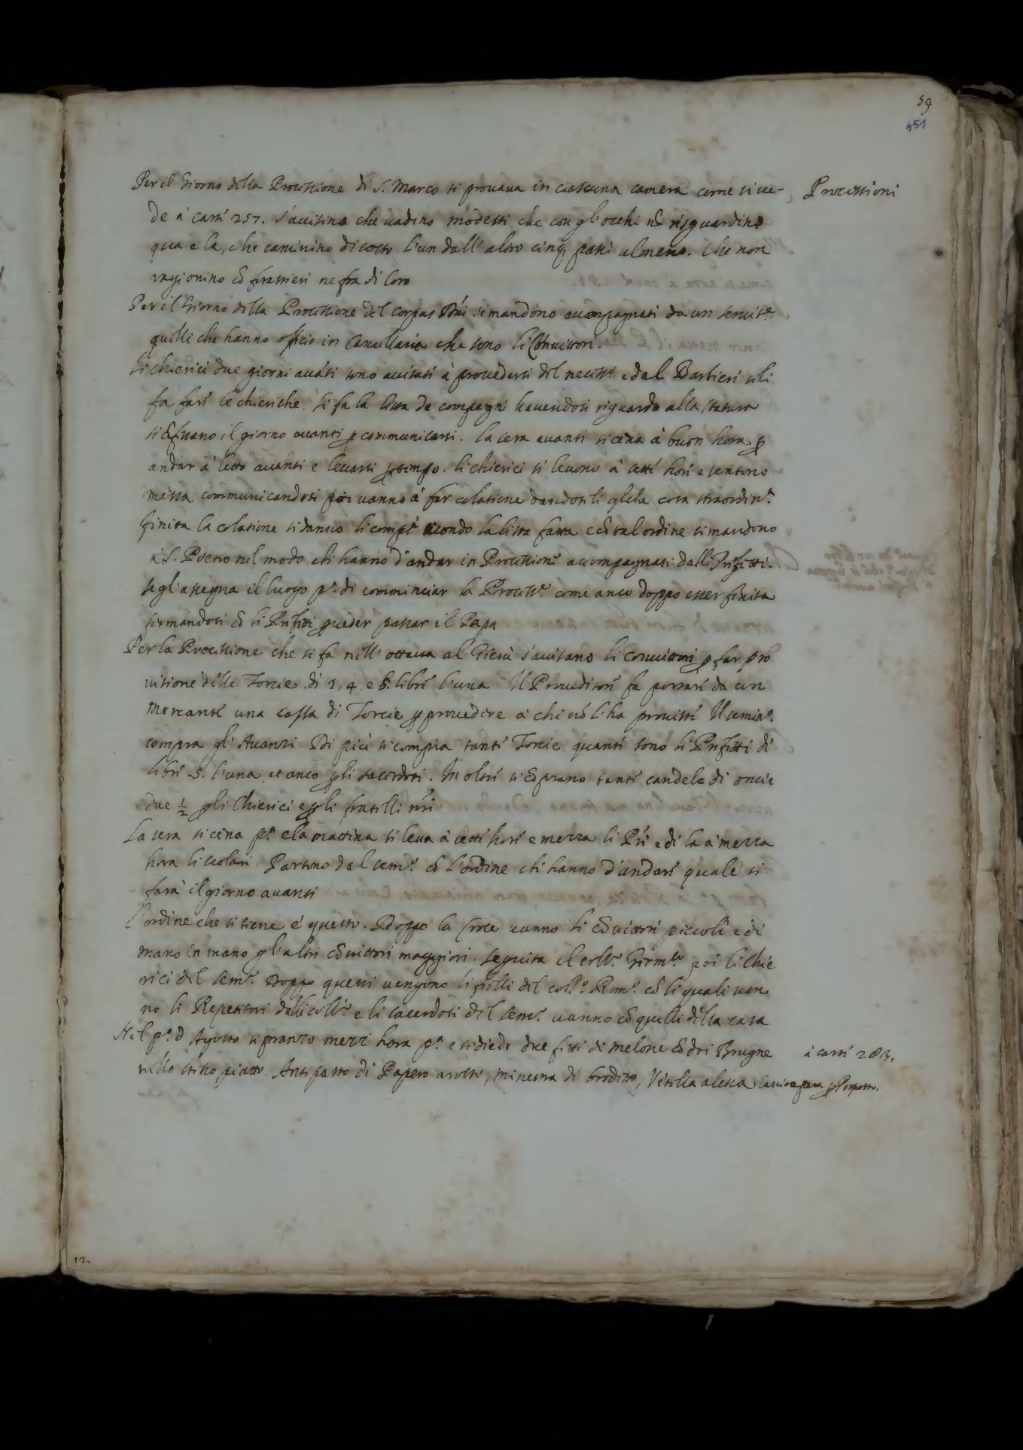 59
451
Per il Giorno della Processione di S. Marco si prouaua in ciascuna camera come si ue-
Processioni
de à cart' 257. s'auisino che uadino modesti che con gl'occhi nō risguardino
qua e la, che caminino discosto l'un dall'altro cinq; passi almeno. Che non
ragionino cō frastieri ne fra di loro
Per il Giorno della Processione del Corpus Dñi si mandono accompagnati da un seruit.e
quelli che hanno offitio in Cancellaria che sono li Cōuittori.
Li chierici due giorni auāti sono auisati à prouedersi del necess.o e dal Barbieri se li
fa fare le chieriche. Si fa la lista de compagni hauendosi riguardo alla statura
il giorno auanti p communicarsi. La sera auanti si cena à buon hora p
andar à letto auanti e leuarsi p tempo. li chierici si leuono à sett' hore e sentono
messa communicandosi poi uanno à far colatione dandosi li qlche cosa straordin.a
Finita la colatione si danno li comp.i secondo la lista fatta e cō tal ordine si mandono
a S. Pietro nel modo che hanno d'andar in Processione accompagnati dalli Prefetti.
se gli assegna il luogo p.a di comminciar la Process.e come anco doppo esser finita
fermandosi cō li Prefetti p ueder passar il Papa
Per la Processione che si fa nell'ottaua al Giesù s'auisano li Conuittori p far pro
uisione delle Torcie di 3, 4. e 5. libre l'una. Il Proueditore fa portare da un
Mercante una cassa di Torcie p prouedere à chi nō l'ha prouiste Il semin.o
compra gl'Auanzi. Di più si compra tante Torcie quanti sono li Prefetti di
libre 3. l'una, et anco p gli sacerdoti. In oltre si cōprano tante candele di oncie
due 1/2 p gli Chierici e p gli fratelli nr̄i
La sera si cena p.a e la mattina si leua à sett' hore e mezza li Pr̄i e di la à mezza
hora li scolari. Partono dal sem.o cō l'ordine che hanno d'andare quale si
farà il giorno auanti
L'ordine che si tiene è questo. Doppo la Croce uanno li Cōuittori piccoli e di
mano in mano gl'altri cōuittori maggiori. Seguita il coll.o Germ.co poi li Chie
rici del Sem.o Doppo questi uengono li frelli del coll.o Rom.o cō li quali uan
no li Repetitori dell coll.o e li sacerdoti del Sem.o uanno cō quelli della casa
Nel p.o d'Agosto si pranzo mezz'hora p.a e si diede due fette di melone cō dei Brugne
à cart' 283.
nello stesso piatto. Antipasto di Papero arosto, minestra di brodetto, Vitella alessa
12.